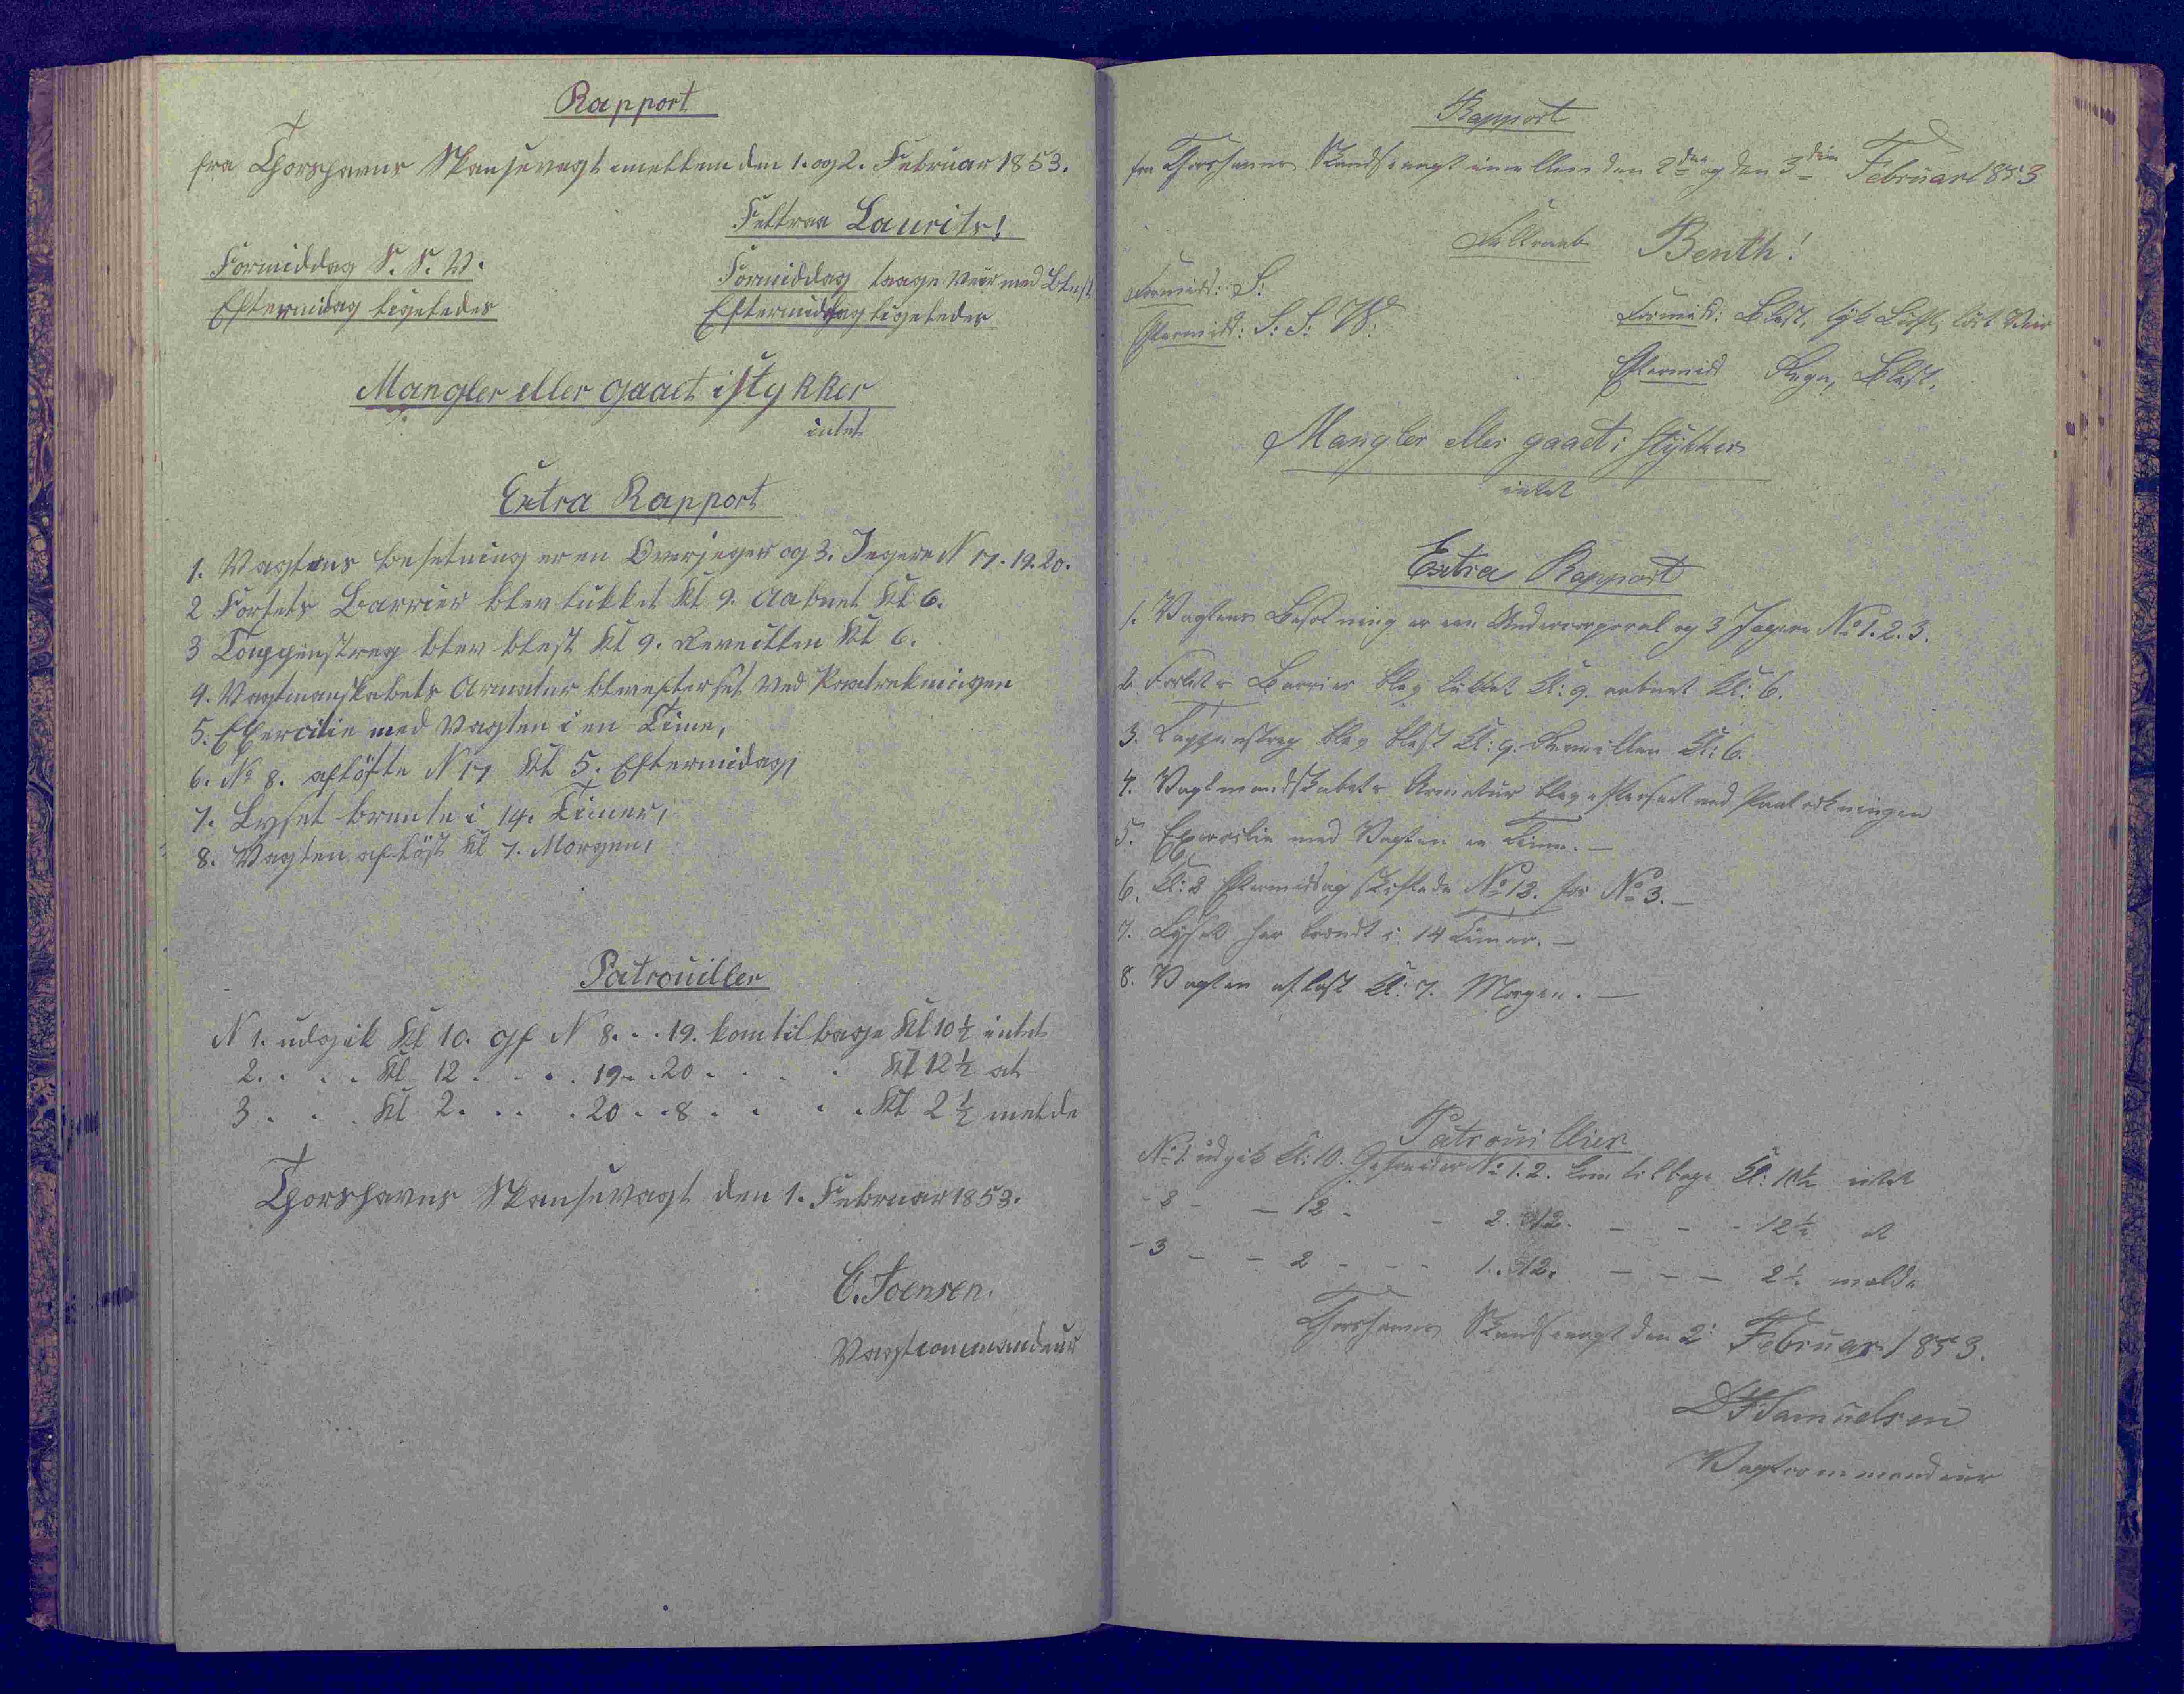 Rapport
fra Thorshavns Skansevagt imellem den 1. og 2. Februar 1853.
Feltraa Laurits!
Formiddag S. S. V.
Formiddag taage Veir med Blest
Eftermidag ligeledes
Eftermiddag ligeledes
Mangler eller gaaet i stykker
intet
Extra Rapport
1. Vagtens besetning er en Overjeger og 3. Jegere N 17. 19. 20.
2 Fortets Barrier blev lukket Kl 9. aabnet Kl 6.
3 Tappenstreg blev blest Kl 9. Reveillen Kl 6.
4. Vagtmanskabets Armatur blev efterset ved Paatrekningen
5. Exercitie med Vagten i en Time,
6. No 8. aflöste N 17 Kl 5. Eftermidag,
7. Lyset brente i 14. Timer,
8. Vagten aflöst Kl 7. Morgen,
Patrouiller
N 1. udgik Kl 10. Gf N 8. . . 19. kom tilbage Kl 10½ intet
2. . . . Kl 12 . . . . 19 . . 20 . . . . Kl 12½ at
3 . . . Kl 2. . . . 20 . . 8 . . . . Kl 2½ melde
Thorshavns Skansevagt den 1. Februar 1853.
C. Joensen.
Vagtcommandeur
Rapport
fra Thorshavns Skandsevagt imellem den 2den og den 3die Februar 1853
Feltraab Benth!
Formidd: S:
Eftermidd: S: S: W:
Formidd: Blest, tyk Luft, Veir
Eftermidd Regn, Blest,
Mangler eller gaaet i stykker
intet
Extra Rapport
1. Vagtens Besætning er en Undercorporal og 3 Jægere No 1. 2. 3.
2. Fortets Barrier blev lukket Kl: 9. aabnet Kl: 6.
3. Tappenstreg blev blest Kl: 9. Reveillen Kl: 6.
4. Vagtmandskabets Armatur blev efterseet ved Paatrekningen
5. Exercitie med Vagten en Time. —
6. Kl: 2 Eftermiddag skiftede No 12. for No 3. —
7. Lyset har brændt i 14 Timer. —
8. Vagten aflöst Kl: 7. Morgen. —
Patrouillier
No 1. udgik Kl: 10. Gefreider No 1. 2. kom tilbage Kl: 10½ intet
- 2 - — 12 - - 2. 12. — - - 12½ at
- 3 — - 2 - - - 1. 12. — - — 2½ melde
Thorshavns Skandsevagt den 2: Februar 1853.
D F Samuelsen
Vagtcommandeur